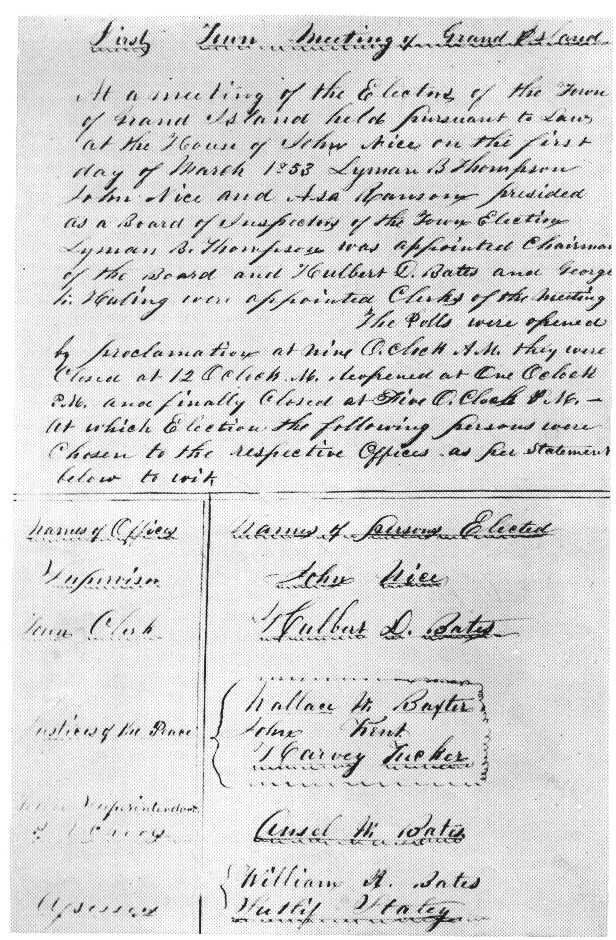 First Town Meeting of Grand Island
At a meeting of the Electors of the Town
of Grand Island held pursuant to Law
at the House of John Nice on the first
day of March 1853 Lyman B Thompson
John Nice and Asa Ransom presided
as a Board of Inspectors of the Town Election
Lyman B. Thompson was appointed Chairman
of the Board and Hulbert D. Bates and George
Huling were appointed Clerks of the Meeting
The Polls were opened
by proclamation at nine O.Clock A.M. they were
Closed at 12 OClock M. Reopened at One Oclock
P.M. and finally Closed at Five O.Clock P.M. —
At which Election the following persons were
Chosen to the respective Offices as per Statement
below to wit
Names of Offices Names of persons Elected
Supervisor John Nice
Town Clerk Hulbert D. Bates
Justices of the Peace Wallace W. Baxter
John Kent
Harvey Tucker
Town Superintendent
of Schools Ansel W. Bates
Assessors William A. Bates
Staley